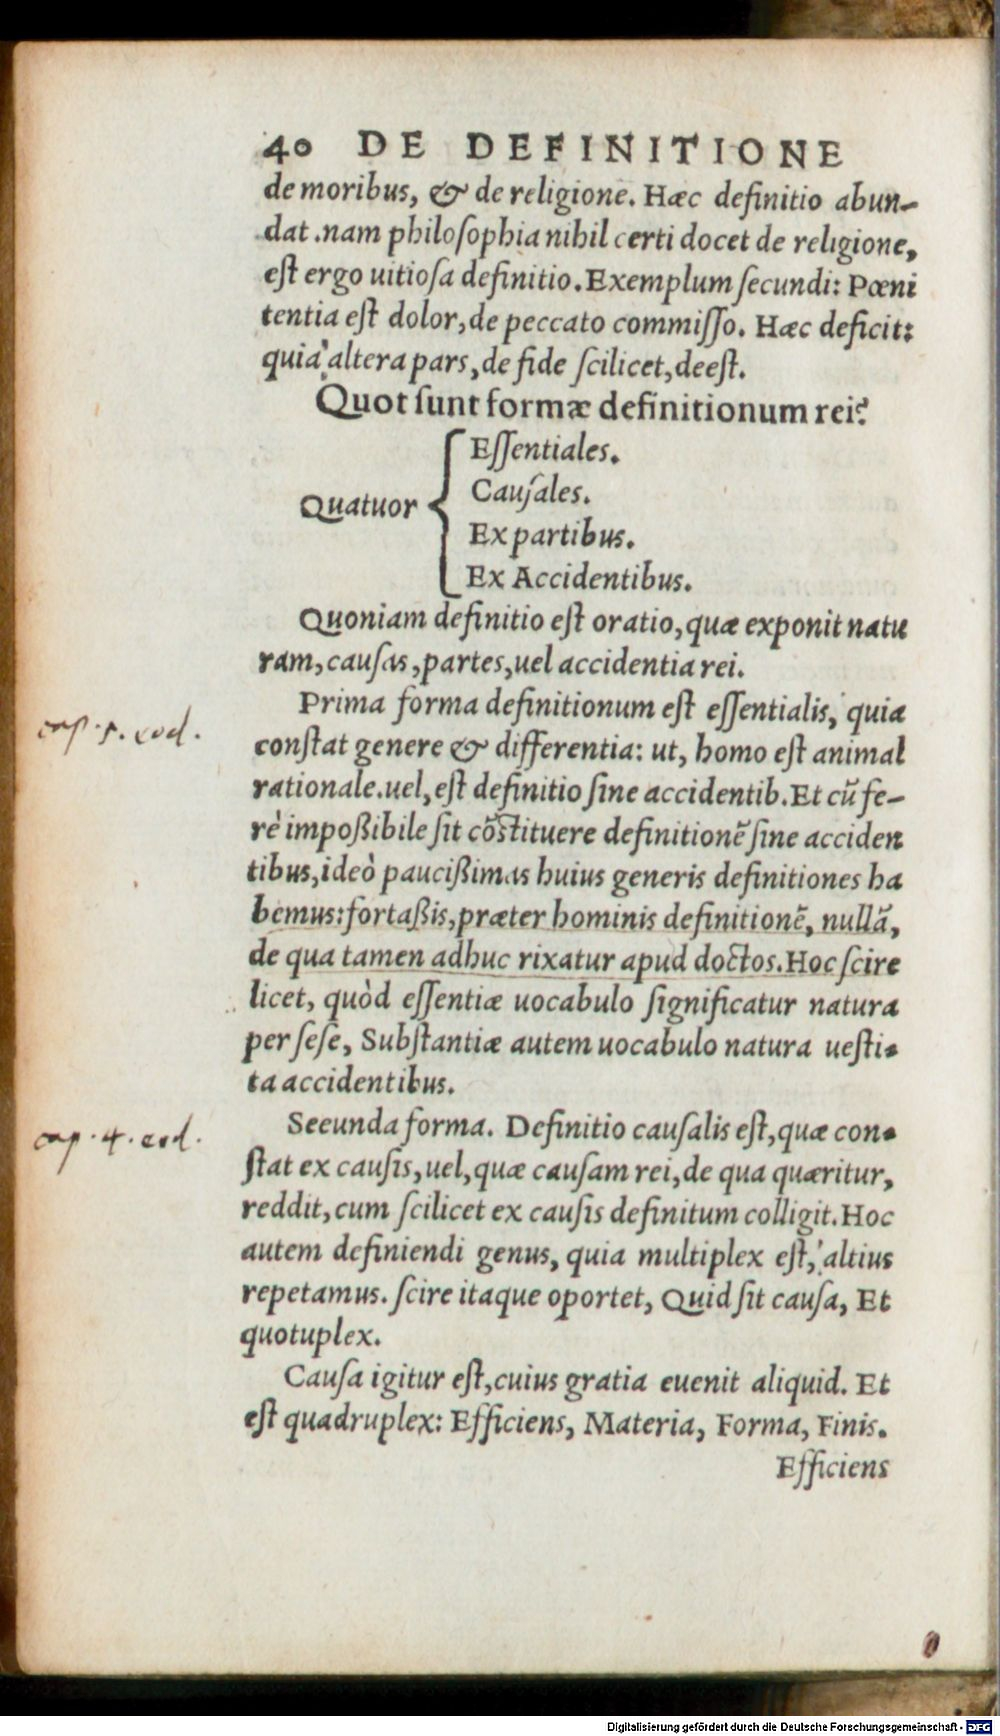 40 DE DEFINITIONE
de moribus, & de religione. Hæc definitio abun-
dat. nam philosophia nihil certi docet de religione,
est ergo uitiosa definitio. Exemplum secundi: Pœni
tentia est dolor, de peccato commisso. Hæc deficit:
quia altera pars, de fide scilicet, deest.
Quot sunt formæ definitionum rei?
Essentiales.
Causales.
Quatuor
Ex partibus.
Ex Accidentibus.
Quoniam definitio est oratio, quæ exponit natu
ram, causas, partes, uel accidentia rei.
Prima forma definitionum est essentialis, quia
cap. 5. eod.
constat genere & differentia: ut, homo est animal
rationale. uel, est definitio sine accidentib. Et cũ fe-
rè impoßibile sit cõstituere definitionẽ sine acciden
tibus, ideò paucißimas huius generis definitiones ha
bemus: fortaßis, præter hominis definitionẽ, nullã,
de qua tamen adhuc rixatur apud doctos. Hoc scire
licet, quòd essentiæ uocabulo significatur natura
per sese, Substantiæ autem uocabulo natura uesti-
ta accidentibus.
Secunda forma. Definitio causalis est, quæ con-
cap. 4. eod.
stat ex causis, uel, quæ causam rei, de qua quæritur,
reddit, cum scilicet ex causis definitum colligit. Hoc
autem definiendi genus, quia multiplex est, altius
repetamus. scire itaque oportet, Quid sit causa, Et
quotuplex.
Causa igitur est, cuius gratia euenit aliquid. Et
est quadruplex: Efficiens, Materia, Forma, Finis.
Efficiens
Digitalisierung gefördert durch die Deutsche Forschungsgemeinschaft - DFG